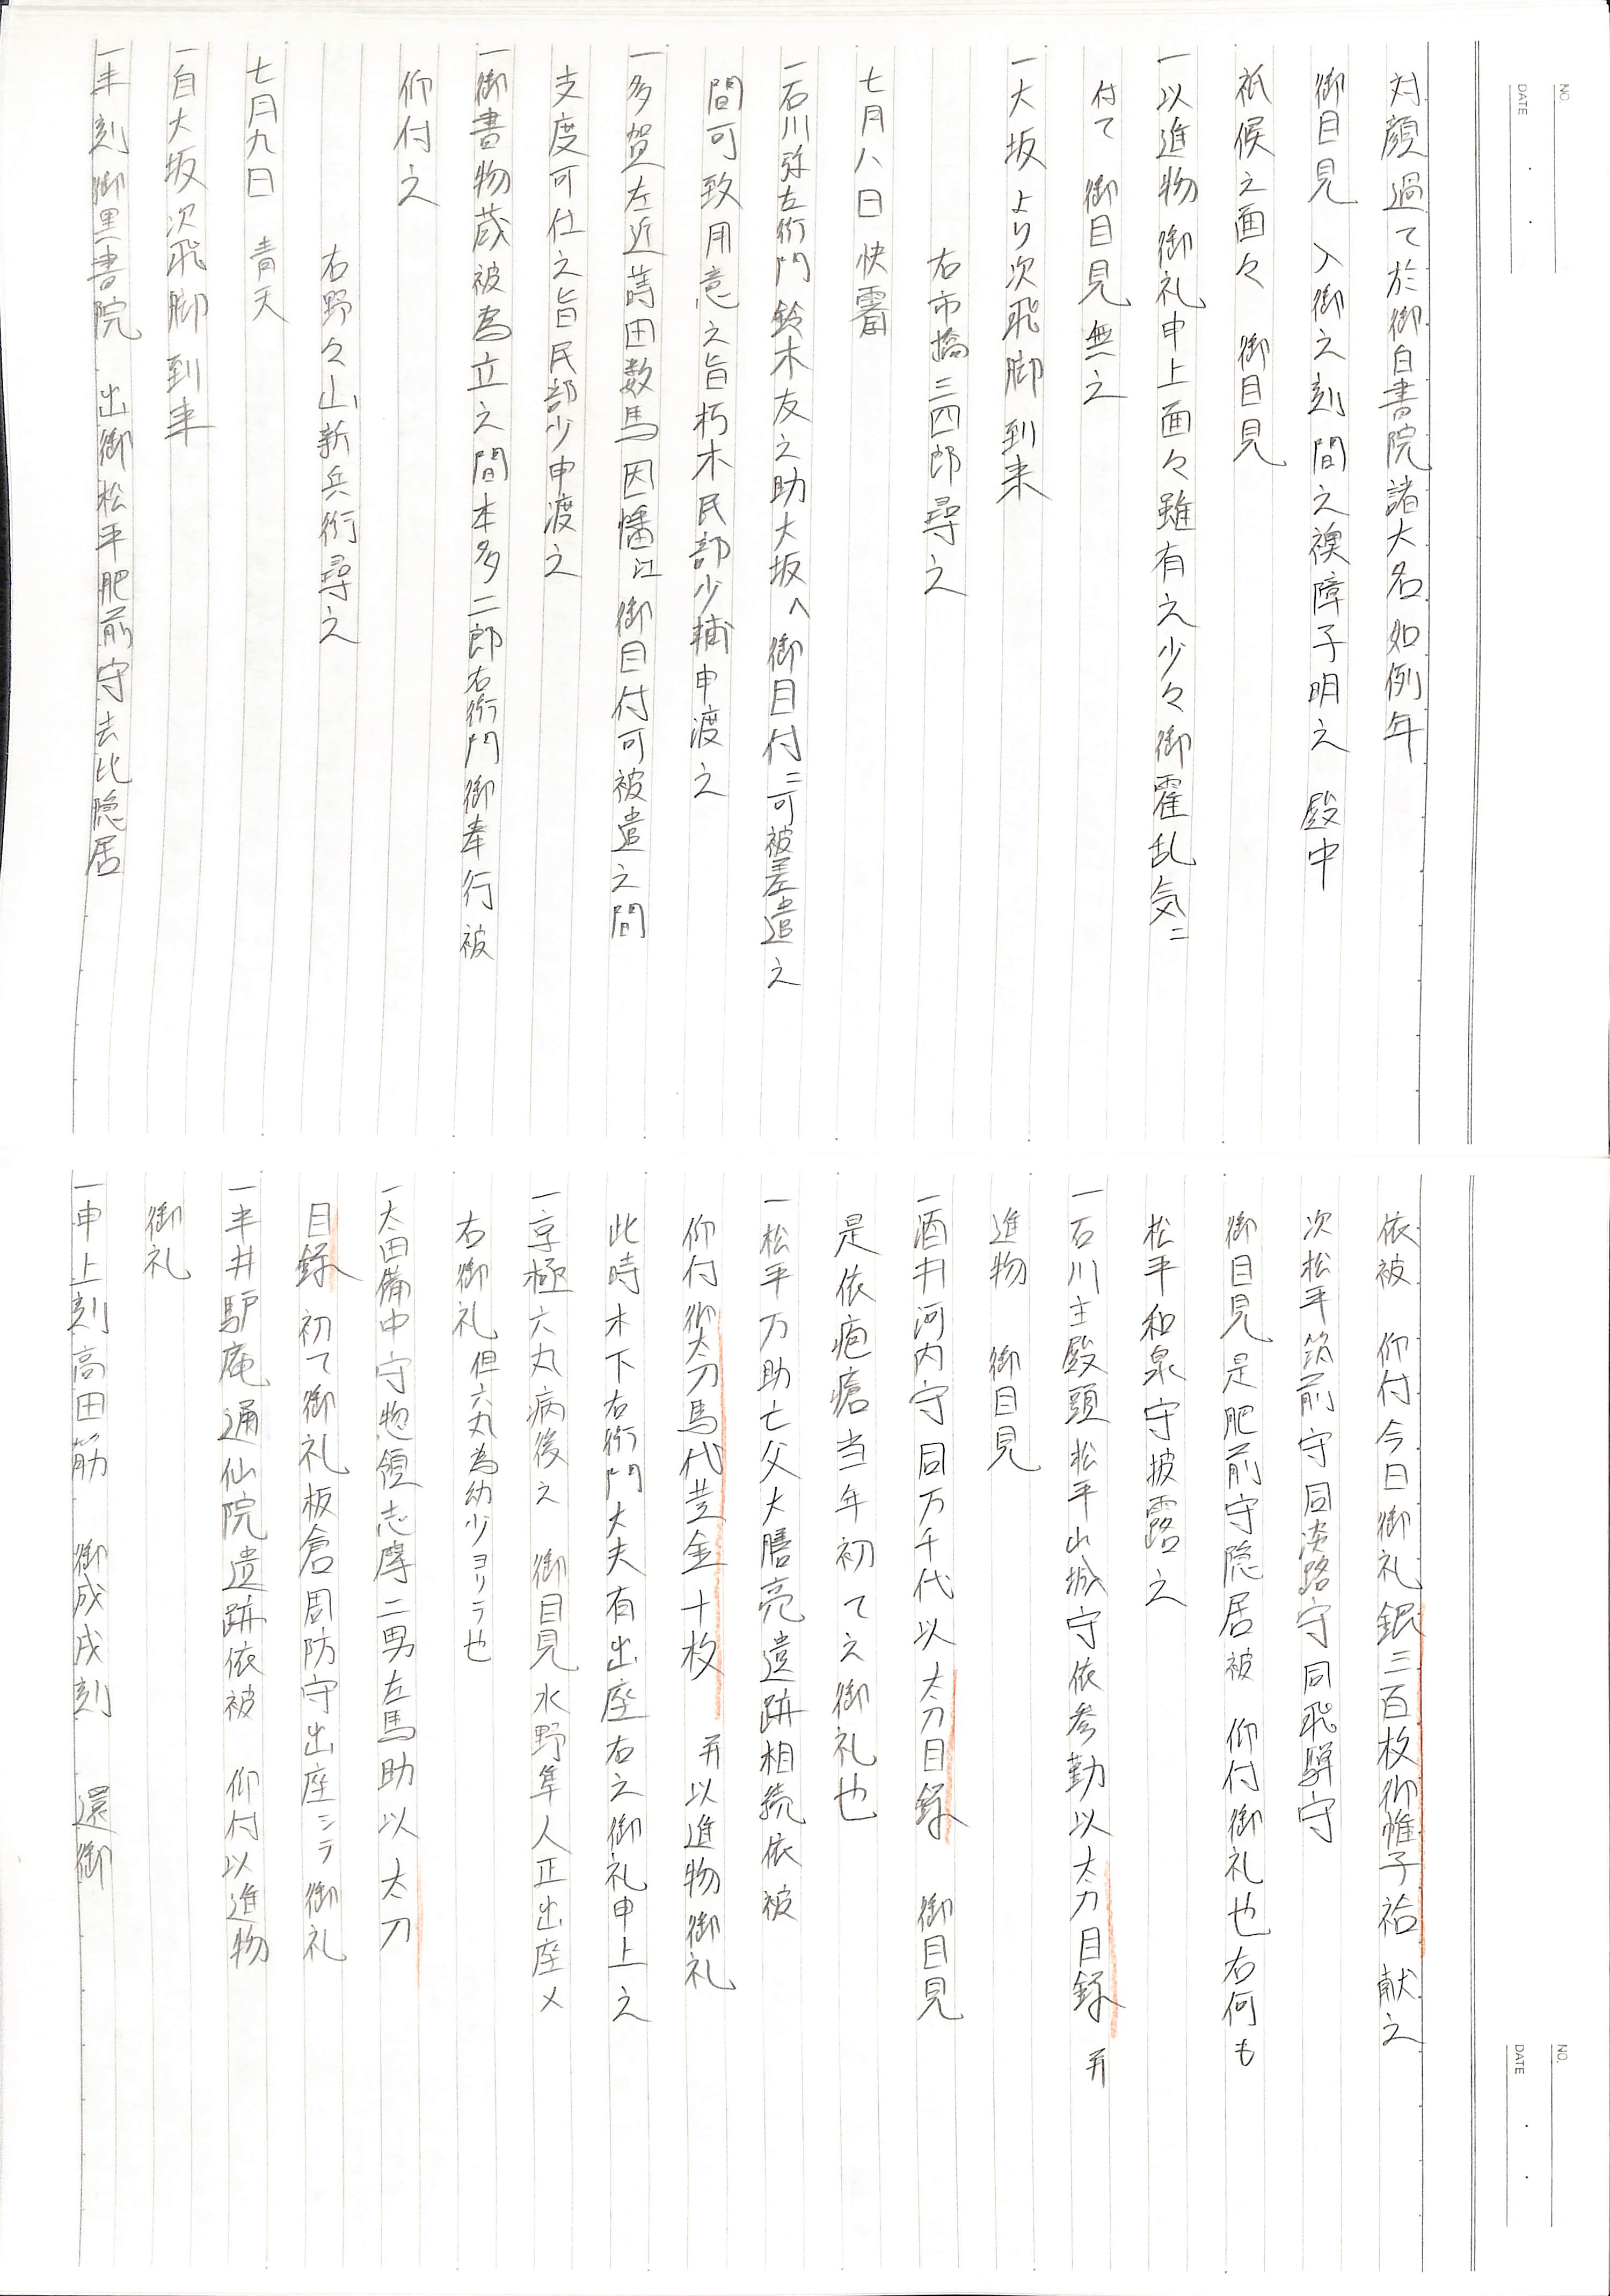 NO.
DATE
対顔過て於御白書院諸大名如例年
御目見　入御之刻間之襖障子明之　殿中
祗候之面々　御目見
一以進物御礼申上面々雖有之少々御霍乱気ニ
付て　御目見無之
一大坂より次飛脚到来
右市橋三四郎尋之
七月八日　快霽
一石川弥左衛門鈴木友之助大坂へ御目付ニ可被差遣之
間可致用意之旨朽木民部少輔申渡之
一多賀左近蒔田数馬因幡江御目付可被遣之間
支度可仕之旨民部少申渡之
一御書物蔵被為立之間本多二郎右衛門御奉行被
仰付之
右野々山新兵衛尋之
七月九日　青天
一自大坂次飛脚到来
一半刻御黒書院　出御松平肥前守去比隠居
NO.
DATE
依被　仰付今日御礼銀三百枚御帷子袷献之
次松平筑前守同淡路守同飛騨守
御目見是肥前守隠居被　仰付御礼也右何も
松平和泉守披露之
一石川主殿頭松平山城守依参勤以太刀目録并
進物　御目見
一酒井河内守同万千代以太刀目録　御目見
是依疱瘡当年初て之御礼也
一松平万助亡父大膳亮遺跡相続依被
仰付御太刀馬代黄金十枚　并以進物御礼
此時木下右衛門大夫有出座右之御礼申上之
一京極六丸病後之　御目見水野隼人正出座〆
右御礼但六丸為幼少ヨリテ也
一太田備中守惣領志摩二男左馬助以太刀
目録初て御礼板倉周防守出座シテ御礼
一半井驢庵通仙院遺跡依被　仰付以進物
御礼
一申上刻高田筋　御成戌刻　還御